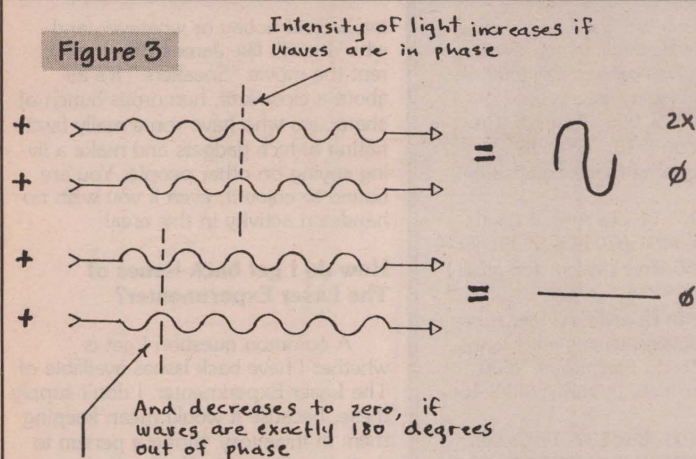 Figure 3
Intensity of light increases if
waves are in phase
+
+
=
2X
∅
+
+
=
∅
And decreases to zero, if
waves are exactly 180 degrees
out of phase